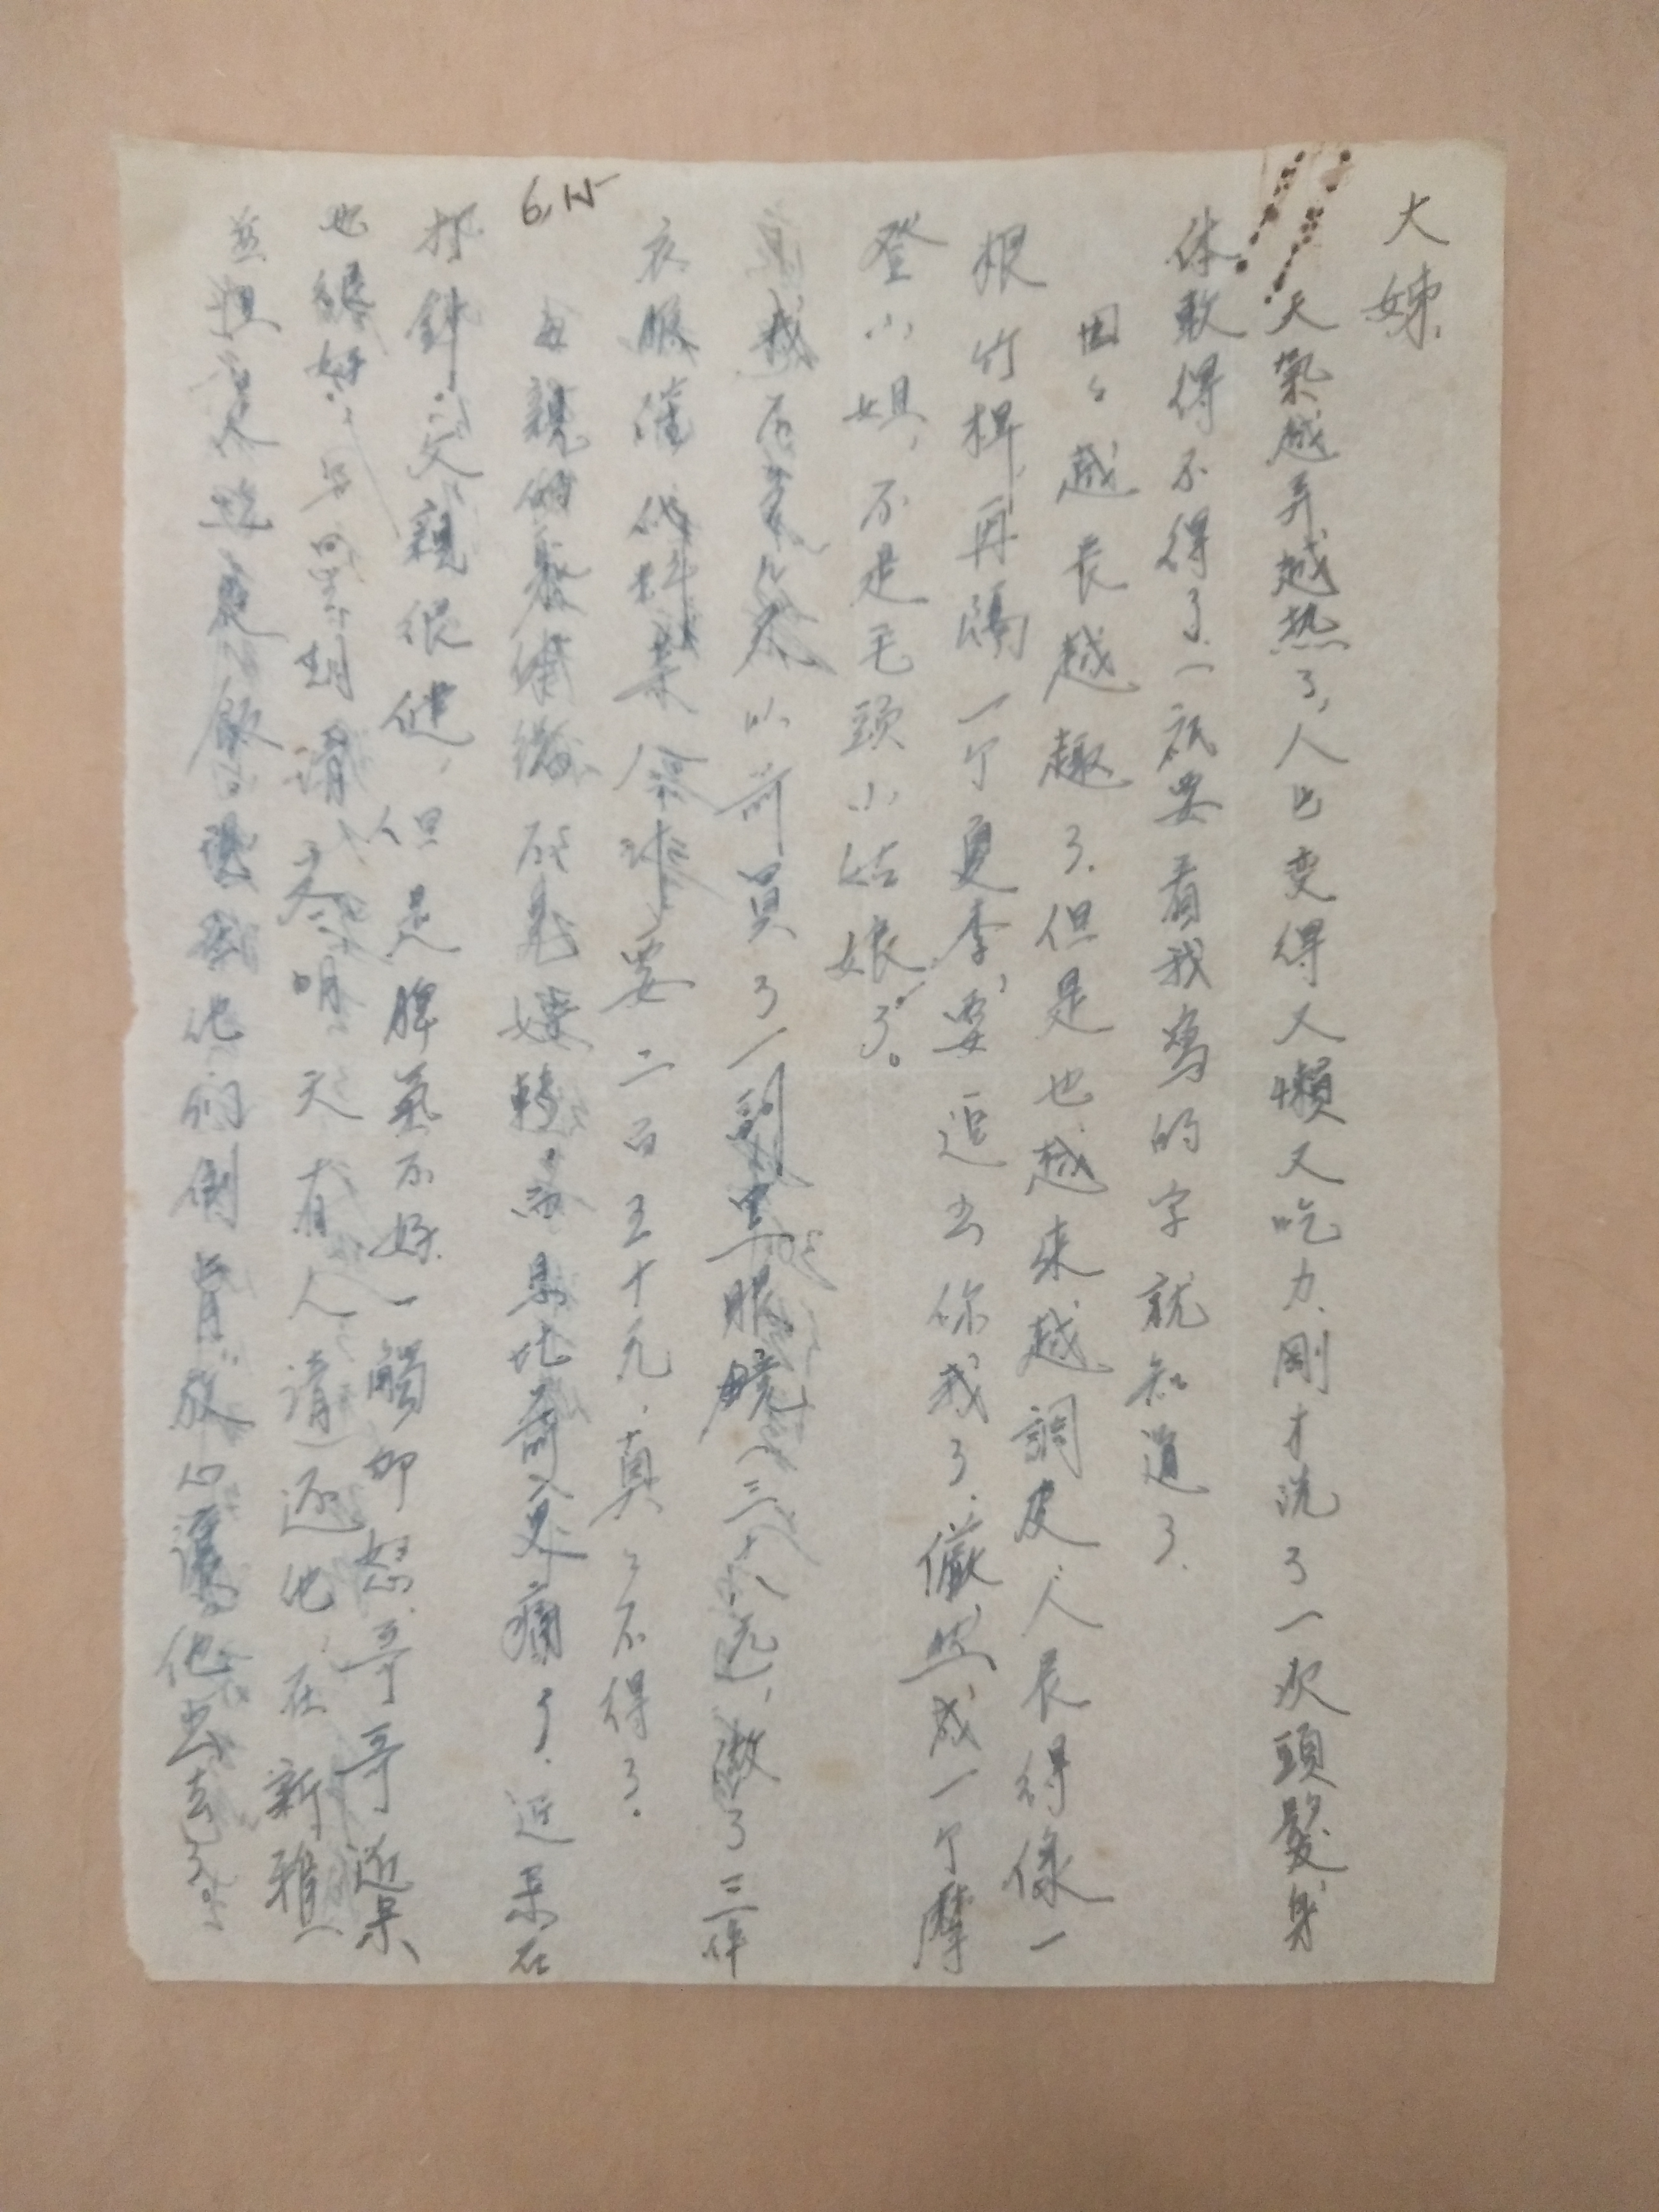 大姊
天氣越弄越热了,人也变得又懶又吃力.剛才洗了一次頭髮,身
体軟得不得了.一祇要看我寫的字就知道了.
囡々越長越趣了.但是也越来越調皮,人長得像一
根竹桿,再隔一个夏季,要追出你我了.儼然成一个摩
登小姐,不是毛頭小姑娘了。
我以前買了一副黑眼鏡(三十八元),做了三件
衣服連代料共要二百五十元,真々不得了.
6,15
母親的 轉,而且比前更痛了.近来在
打針.父親很健,但是脾氣不好.一觸即怒.哥哥近来
也很好,請天有人請還他,在新雅
並担他們倒肯放心讓他出去了。